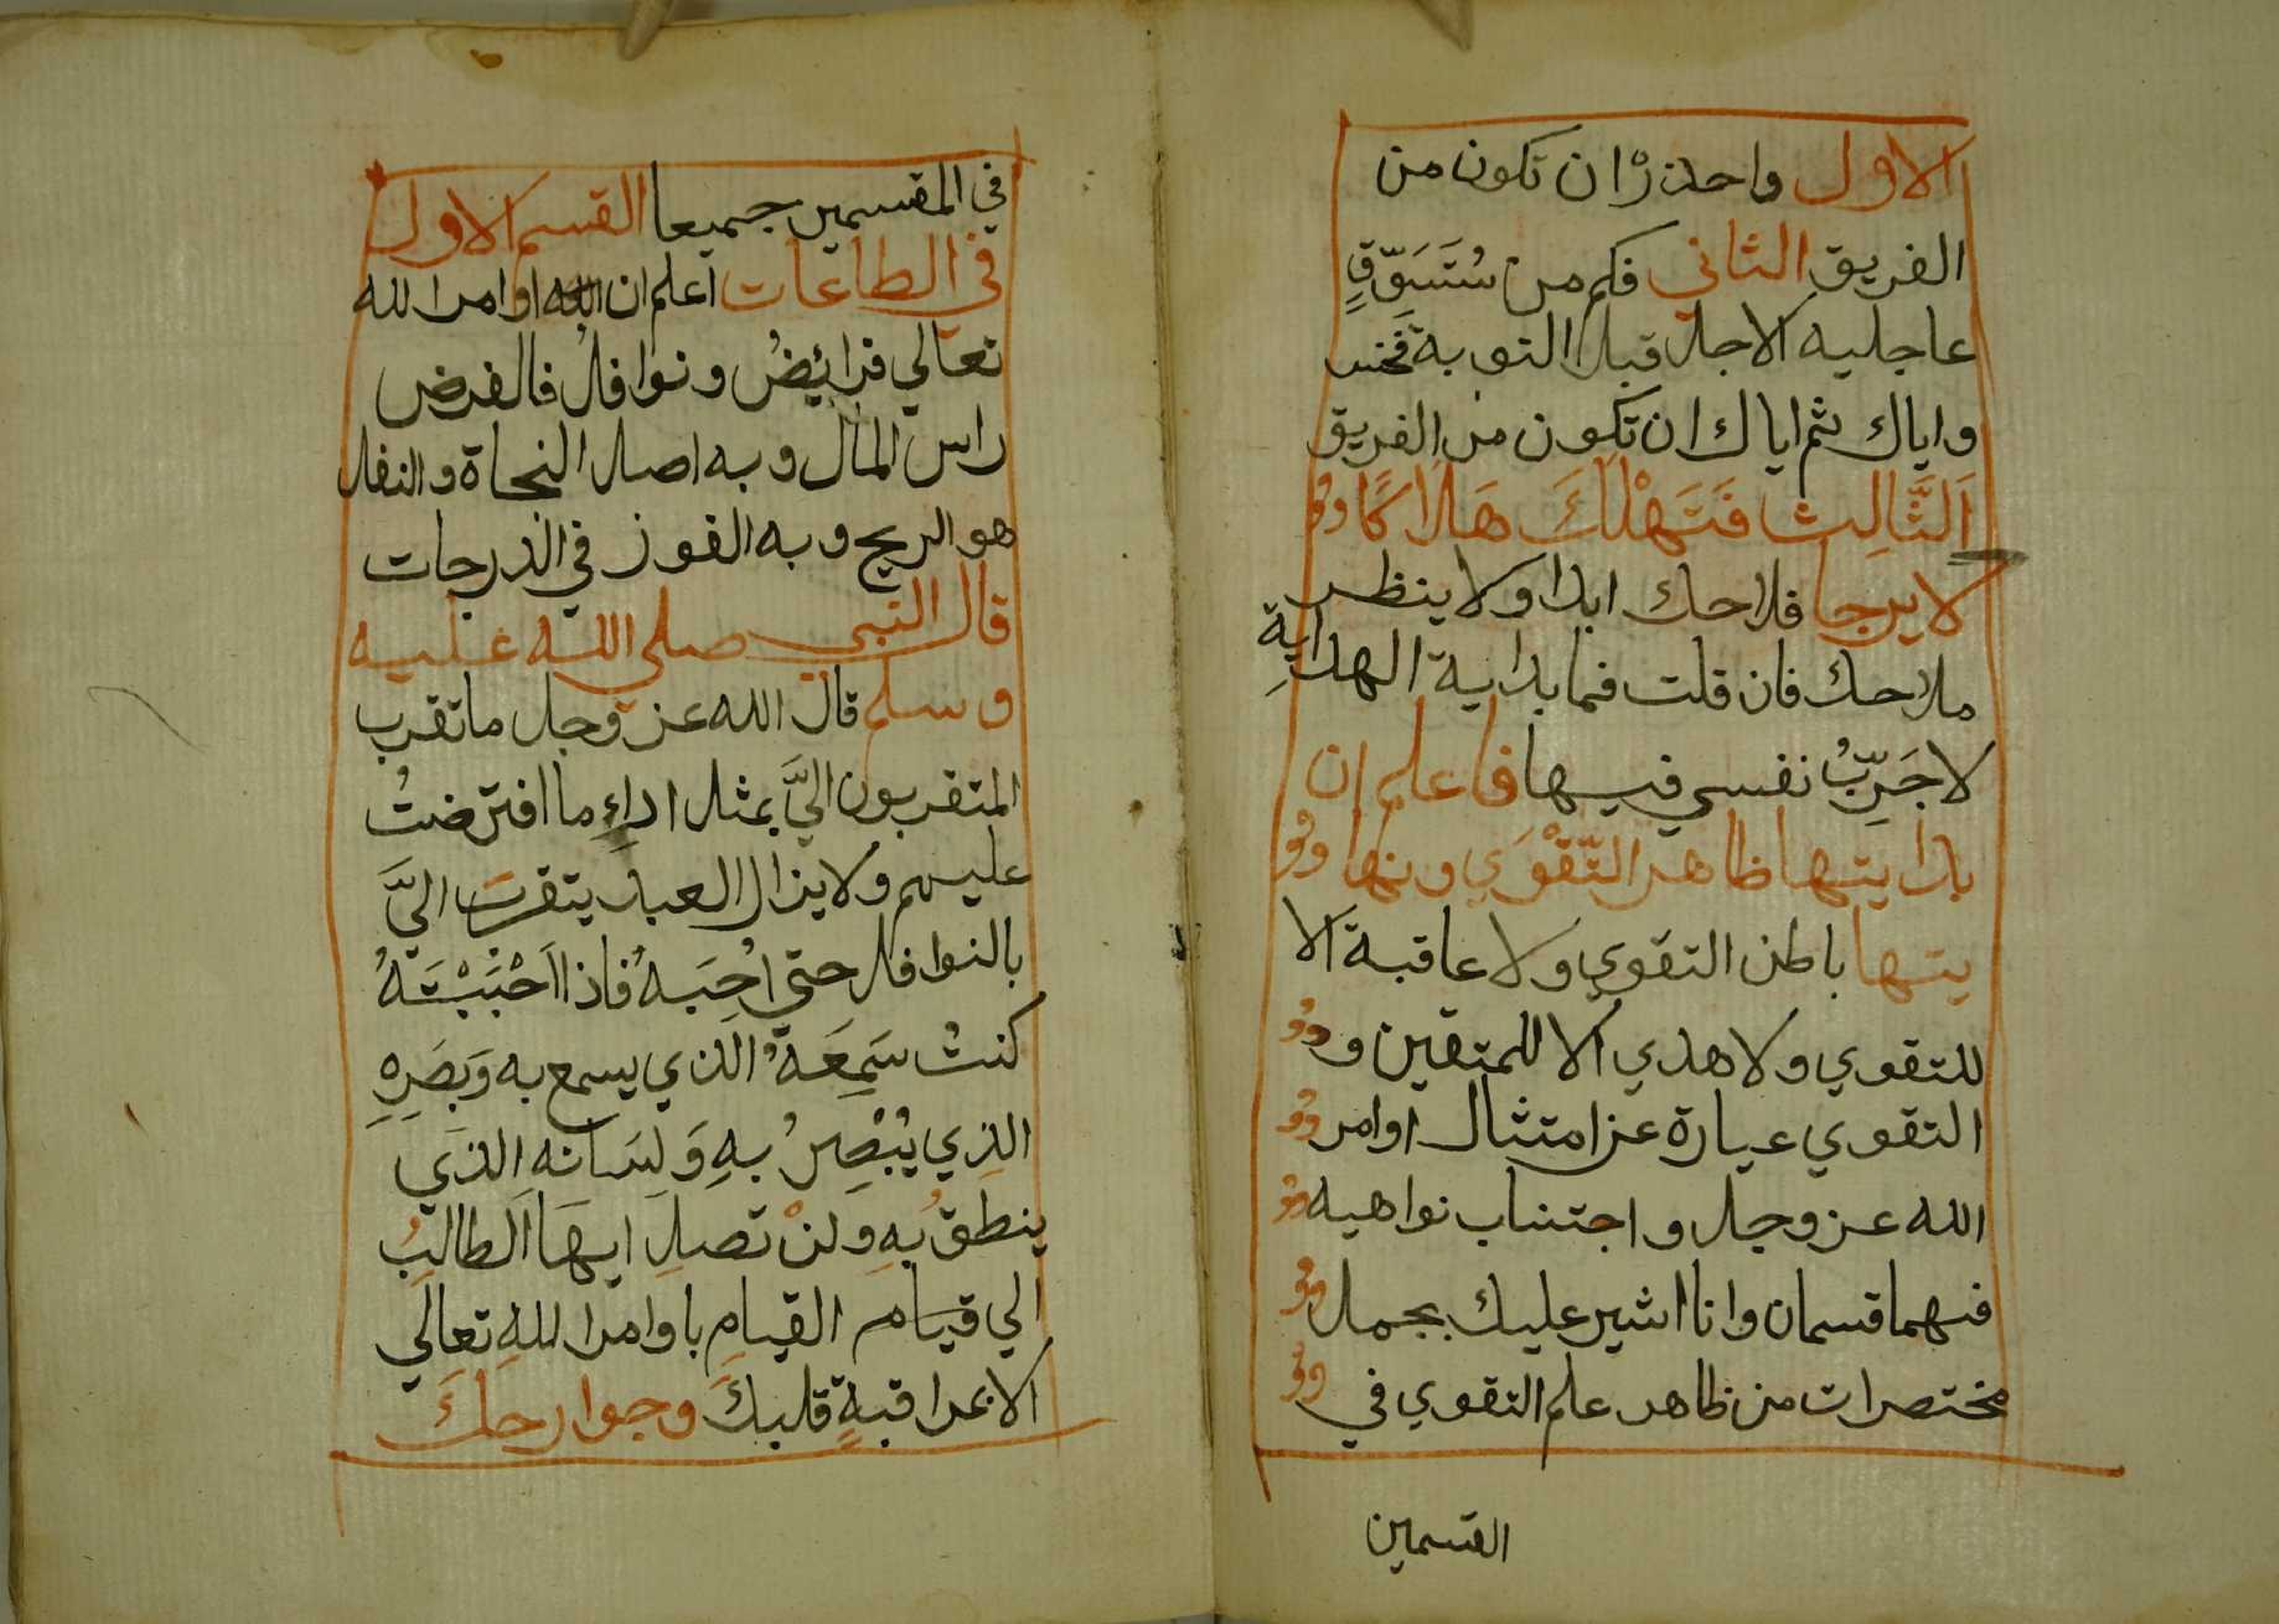 الاول واحذرْ ان تكون من
الفريق الثاني فكم من سُتَسَوِّقٍ
عاجليه الاجل قبل التوبة فخسر
واياك ثم اياك ان تكون من الفريق
اَلثَّالِث فَتَهْلَكَ هَلَاكًا
لا يرجا فلاحك ابدا ولا ينظر
ملاحك فان قلت فما بداية الهدايةِ
لاجَرِّبُ نفسي فيها فاعلم ان
بدايتها ظاهر التَّقْوَي ونها
يتها باطن التقوي ولا عاقبة الا
للتقوي ولا هدي الا للمتقين و
التقوي عبارة عن امتثال اوامر
الله عز وجل واجتناب نواهيه
فهما قسمان وانا اشير عليك بجمل
مختصرات من ظاهر علم التقوي في
القسمين
في المقسمين جميعا القسم الاول
في الطاعات اعلم ان اوامر الله
تعالي فرائِضُ ونوافلُ فالفرض
راس المال وبه اصل النجاة والنفل
هو الربح وبه الفوز في الدرجات
قال النبي صلي الله عليه
وسلم قال الله عز وجل ما تقرب
المتقربون اليَّ بمثل اداءِ ما افترضتُ
عليهم ولا يزال العبد يتقرب اليَّ
بالنوافل حتي احُِبَهُ فاذا اَحْبَبْتَهُ
كنتُ سَمِعَهُ الذي يسمع به وَبَصَرِهِ
الذِي يُبْصِرُ بِهِ وَلِسَانهِ الذي
ينطقُ بِهِ ولنْ تصلِ ايهَا الطالبُ
الي قيام القيامِ باوامر اللهِ تعالَي
الا بمراقبةٍ قلبكَ وجوارحكَ